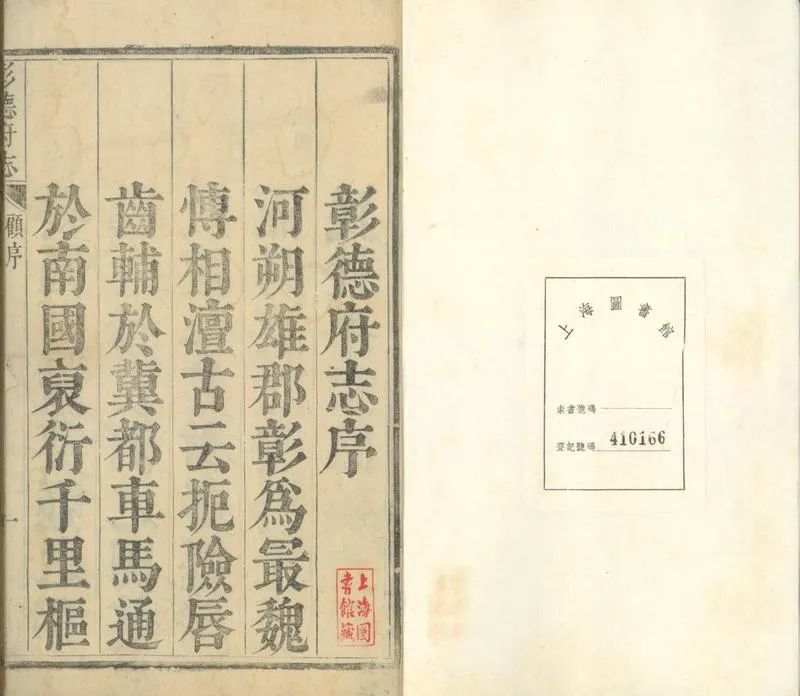 上海圖書館
索書號碼
登記號碼 410166
彰德府志序
河朔雄郡彰爲最魏
愽相澶古云扼險唇
齒輔於冀都車馬通
於南國袤衍千里樞
上海圖
書館藏
彰德府志
顧序
一